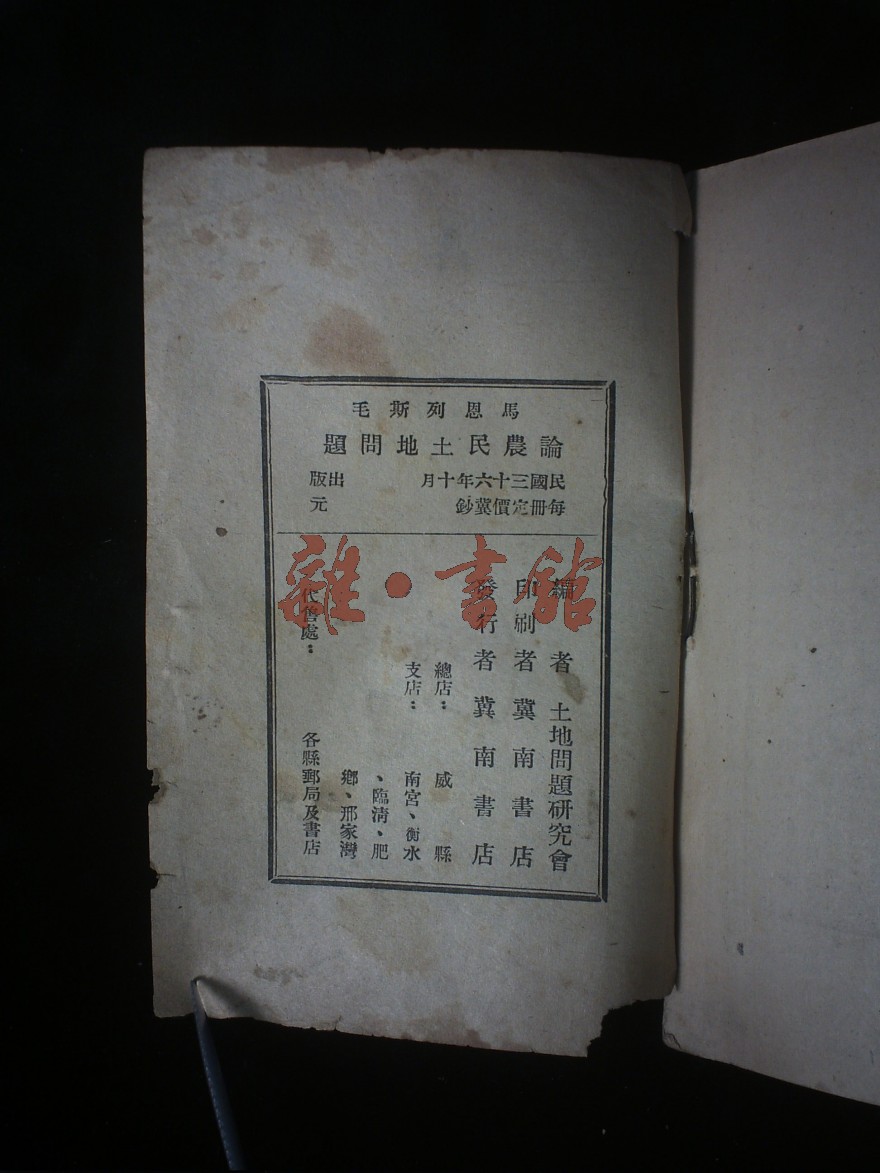 馬恩列斯毛
論農民土地問題
民國三十六年十月 出版
每冊定價冀鈔 元
編者 土地問題研究會
印刷者 冀南書店
發行者 冀南書店
總店： 威縣
支店： 南宮、衡水
、臨清、肥
鄉、邢家灣
代售處： 各縣郵局及書店
雜·書館